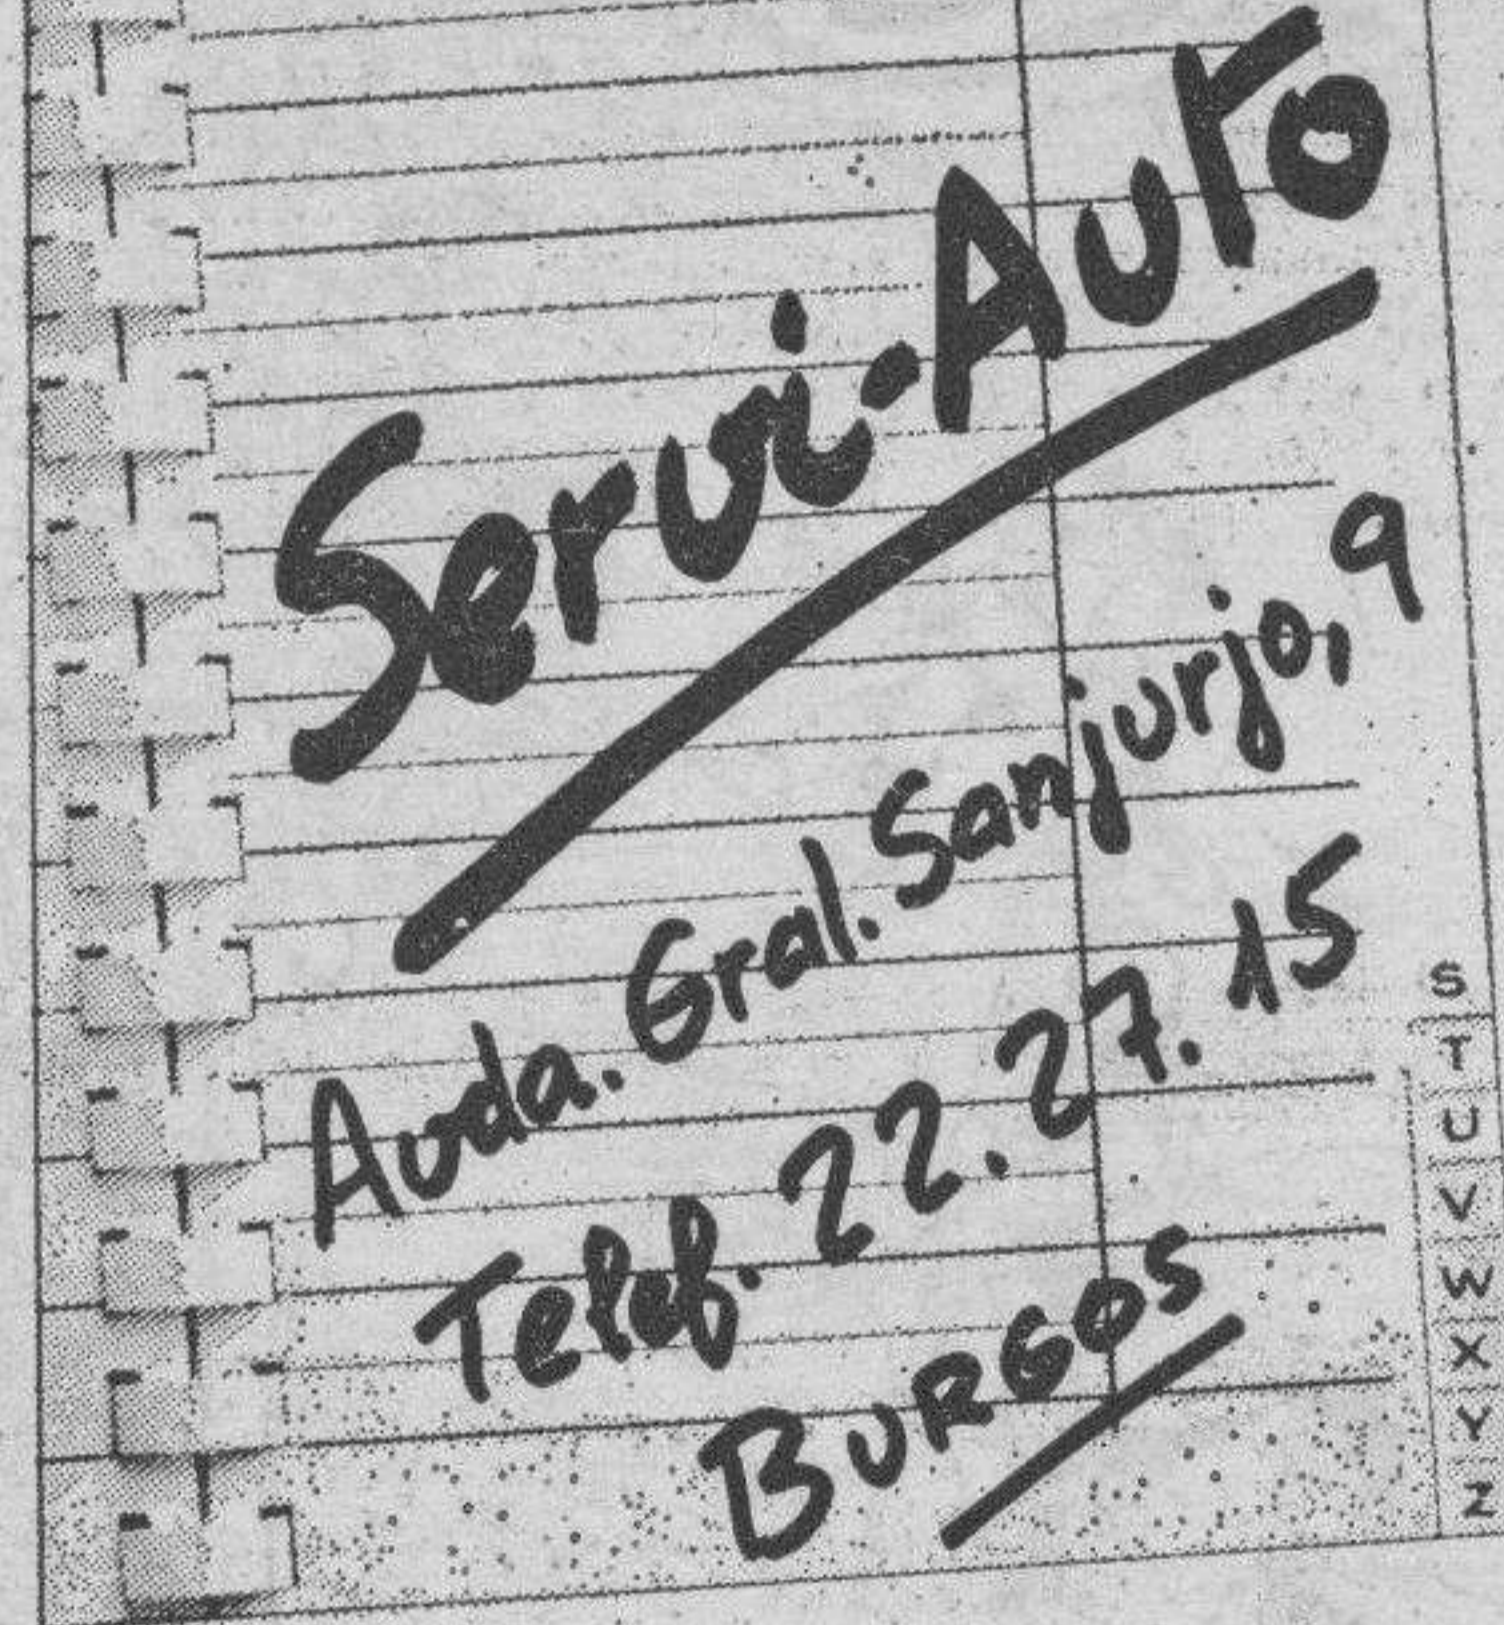 Servi-Auto
Avda. Gral. Sanjurjo, 9
Telef. 22.27.15
BURGOS
S
T
U
V
W
X
Y
Z